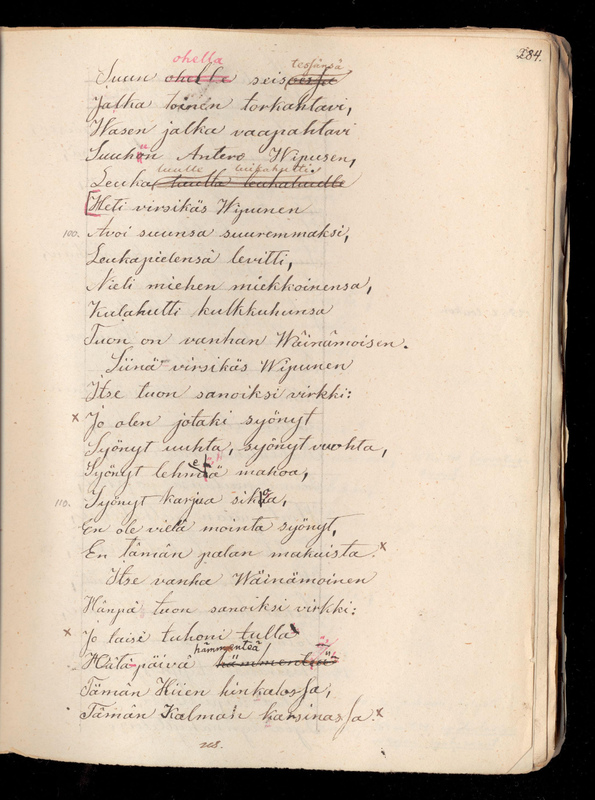 284.
ohella tessänsä
Suun ohella seisoessa
Jalka toinen torkahtavi,
Wasen jalka vaapahtavi
Suuhun Antero Wipusen,
luulle luikahutti
Leuka luulla leukaluulle
Heti virsikäs Wipunen
100. Avoi suunsa suuremmaksi,
Leukapielensä levitti,
Nieli miehen miekkoinensa,
Kulahutti kulkkuhunsa
Tuon on vanhan Wäinämoisen.
Siinä virsikäs Wipunen
Itse tuon sanoiksi virkki:
x Jo olen jotaki syönyt
Syönyt uuhta, syönyt vuohta,
Syönyt lehmeä mahoa,
110. Syönyt karjua sikoa,
En ole vielä mointa syönyt,
En tämän palan makuista. x
Itse vanha Wäinämoinen
Hänpä tuon sanoiksi virkki:
x Jo taisi tuhoni tulla
hämmenteä
Hätäpäivä hämmentää
Tämän Hiien hinkalossa,
Tämän Kalman karsinassa. x
268.